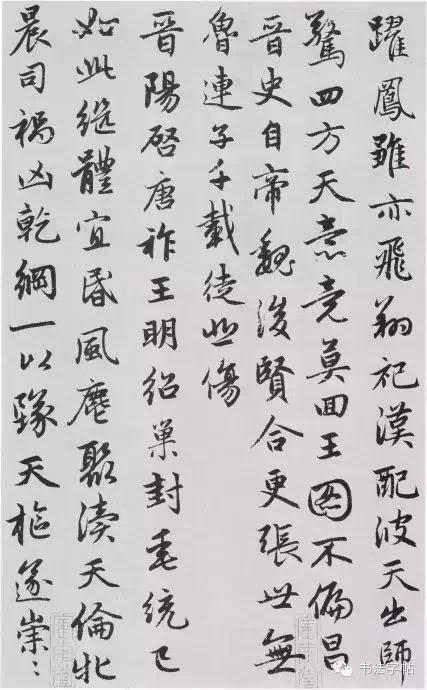 躍鳳雛亦飛翔祀漢配彼天出師
驚四方天意竟莫回王圖不偏昌
晉史自帝魏後賢合更張世無
魯連子千載徒悲傷
晉陽啓唐祚王明紹巢封垂統已
如此繼體宜昏風麀聚瀆天倫牝
晨司禍凶乾綱一以墜天樞遂崇〻
书法字帖